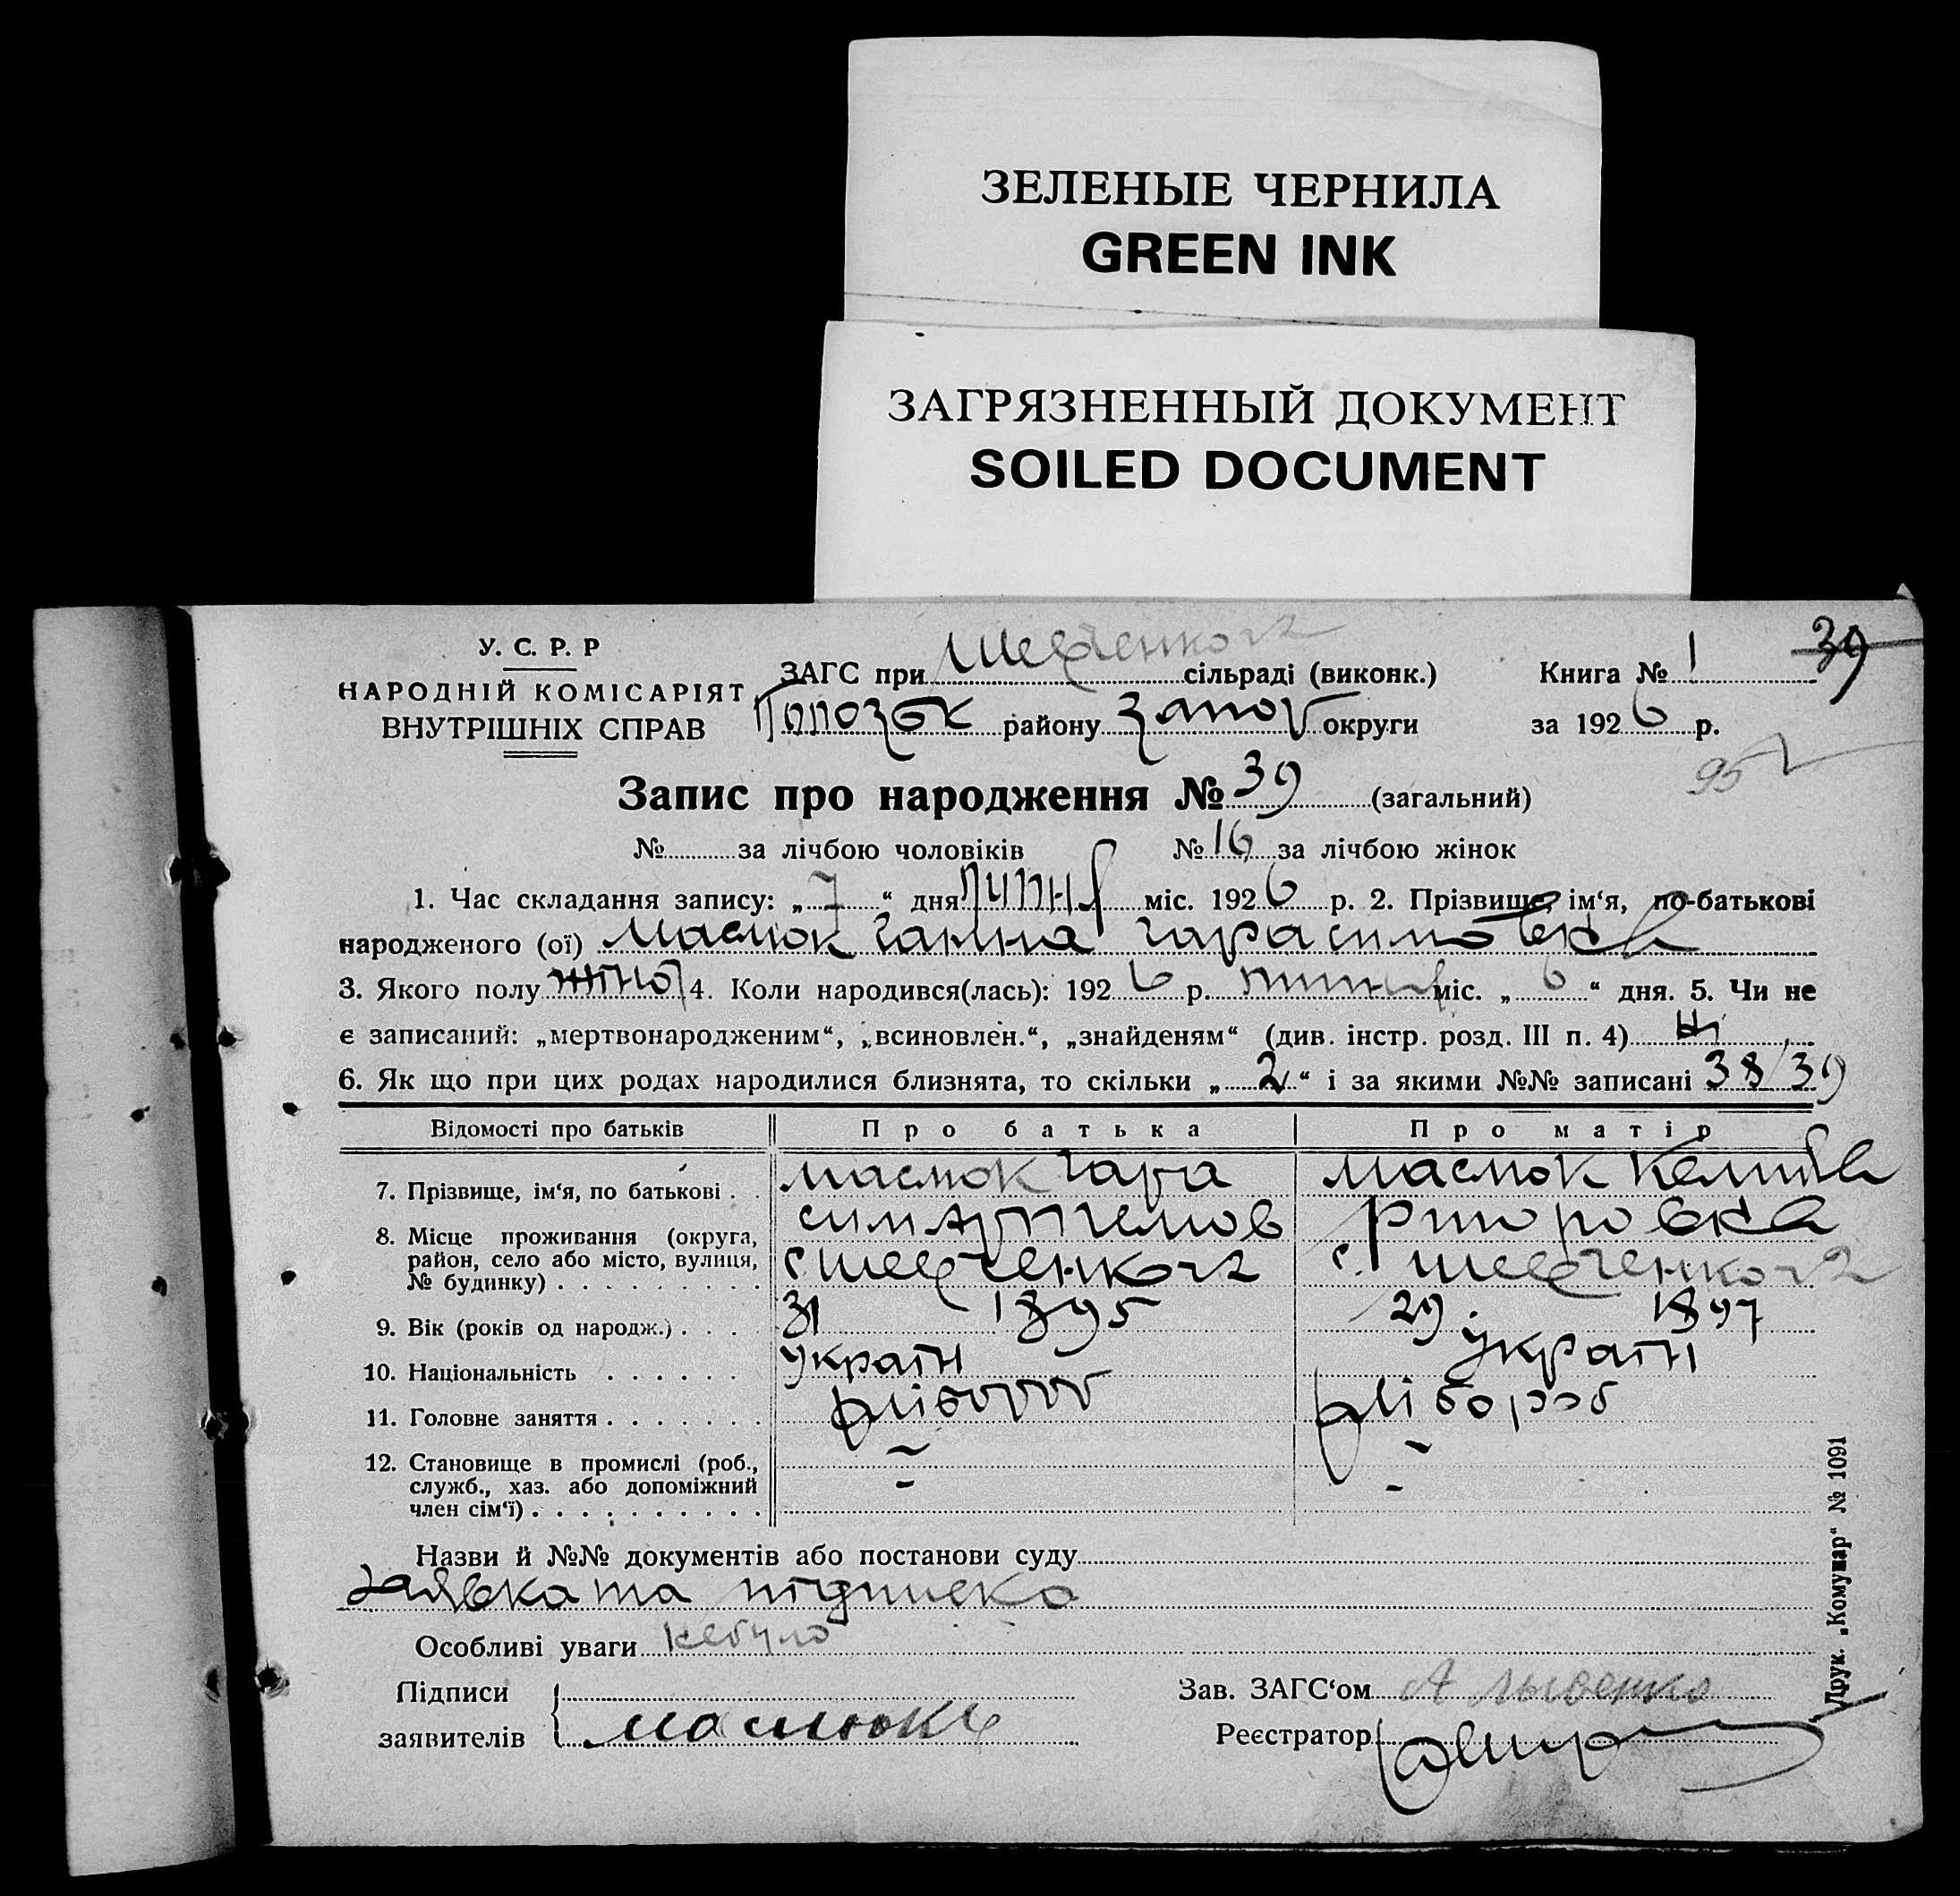 ЗЕЛЕНЫЕ ЧЕРНИЛА
GREEN INK
ЗАГРЯЗНЕННЫЙ ДОКУМЕНТ
SOILED DOCUMENT
39
У. С. Р. Р
НАРОДНІЙ КОМІСАРІЯТ
ВНУТРІШНІХ СПРАВ
ЗАГС при сільраді (виконк.)
району Запор округи
Книга № 1
за 1926 р.
95
Запис про народження № 39 (загальний)
№ за лічбою чоловіків № 16 за лічбою жінок
1. Час складання запису: „ 7 “ дня липня міс. 1926 р. 2. Прізвище, ім‘я, по-батькові
народженого (ої) Масюк Ганна Гарасимовка
3. Якого полу жіно 4. Коли народився(лась): 1926 р. липня міс. „ 6 “ дня. 5. Чи не
є записаний: „мертвонародженим“, „всиновлен.“, „знайденям“ (див. інстр. розд. III п. 4) Ні
6. Як що при цих родах народилися близнята, то скільки „ 2 “ і за якими №№ записані 38/39
Відомості про батьків Про батька Про матір
7. Прізвище, ім‘я, по батькові . . Масюк Гара Масюк
сим Артемов
8. Місце проживання (округа, район, село або місто, вулиця, № будинку) . . . . . . . . . с. с.
9. Вік (років од народж.) . . . . 31 1895 29 1897
10. Національність . . . . . . україн україн
11. Головне заняття . . . . . . . хлібороб хлібороб
12. Становище в промислі (роб., служб., хаз. або допоміжний член сім‘ї) . . . . . . . . . . - -
Назви й №№ документів або постанови суду
Заявка та підписка
Особливі уваги не було
Підписи
заявителів Масюк
Зав. ЗАГС‘ом А
Реєстратор
Друк. „Комунар“ № 1091